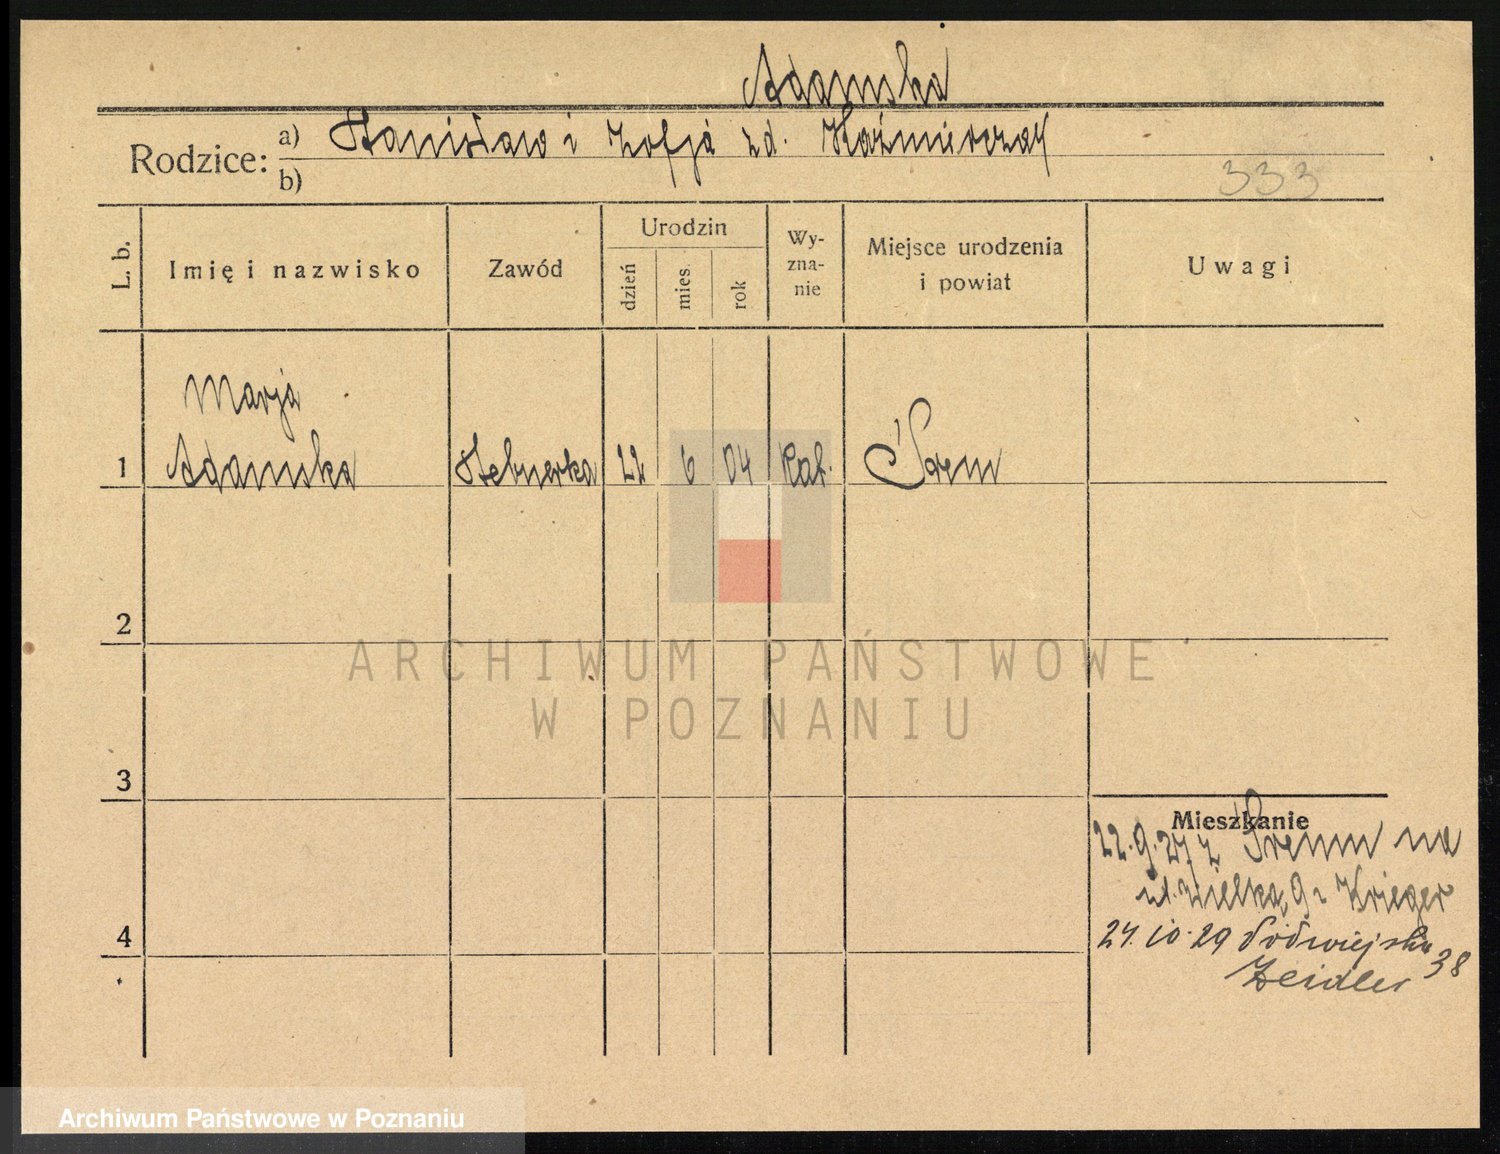 Adamska
Rodzice: a) Stanisław i Zofja zd. Kaźmierczak
b)
333
L. b. Imię i nazwisko Zawód Urodzin dzień mies. rok Wyzna-nie Miejsce urodzenia i powiat Uwagi
Marja
1 Adamska 22 6 04 Kat. Śrem
2
ARCHIWUM PAŃSTWOWE
W POZNANIU
3
Mieszkanie
22.9.27 z Śremu na
ul. Wielka 9 Krieger
4
24.10.29 Półwiejska 38
Zeidler
Archiwum Państwowe w Poznaniu